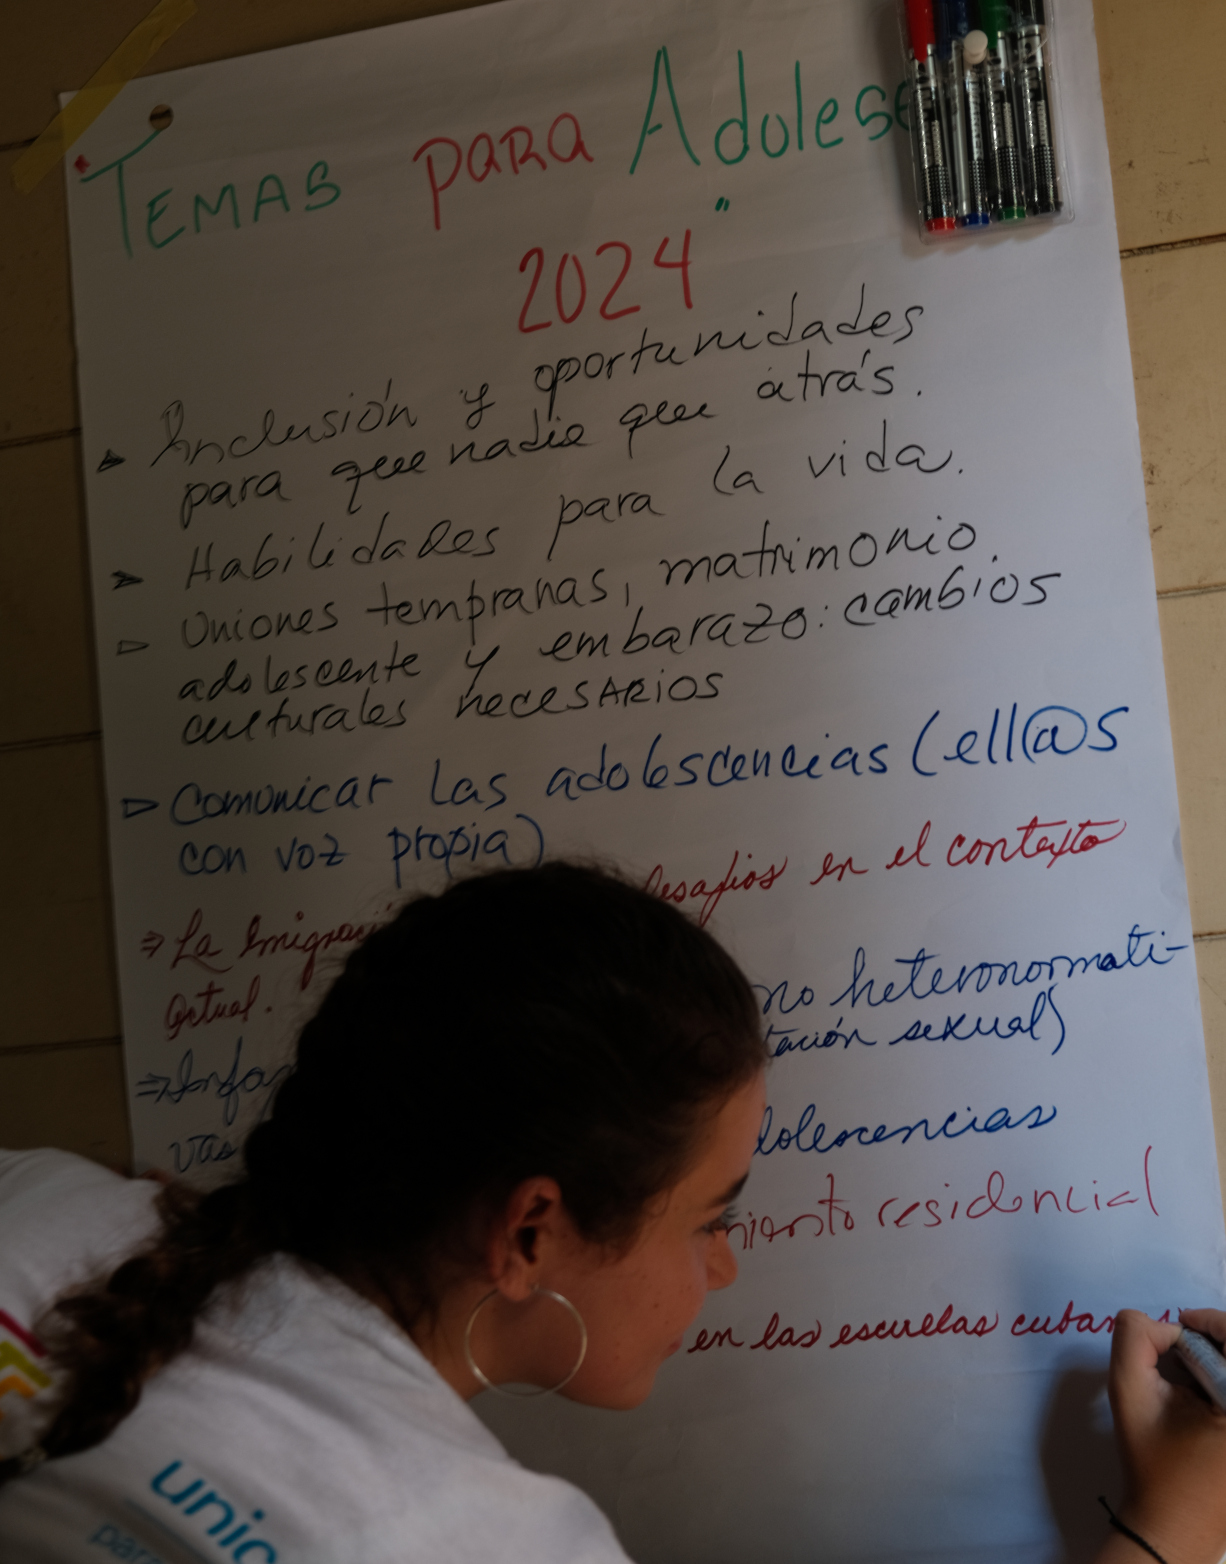 TEMAS para Adolesc
"
2024
Inclusión y oportunidades
para que nadie que atrás.
Habilidades para la vida.
Uniones tempranas, matrimonio
adolescente y embarazo: cambios
culturales necesarios
Comunicar las adolescencias (ell@s
con voz propia)
⇒ La Emigraci desafios en el contexto
actual.
⇒ Infa no heteronormati-
vas tación sexual)
dolescencias
miento residencial
en las escuelas cuban
unic
para